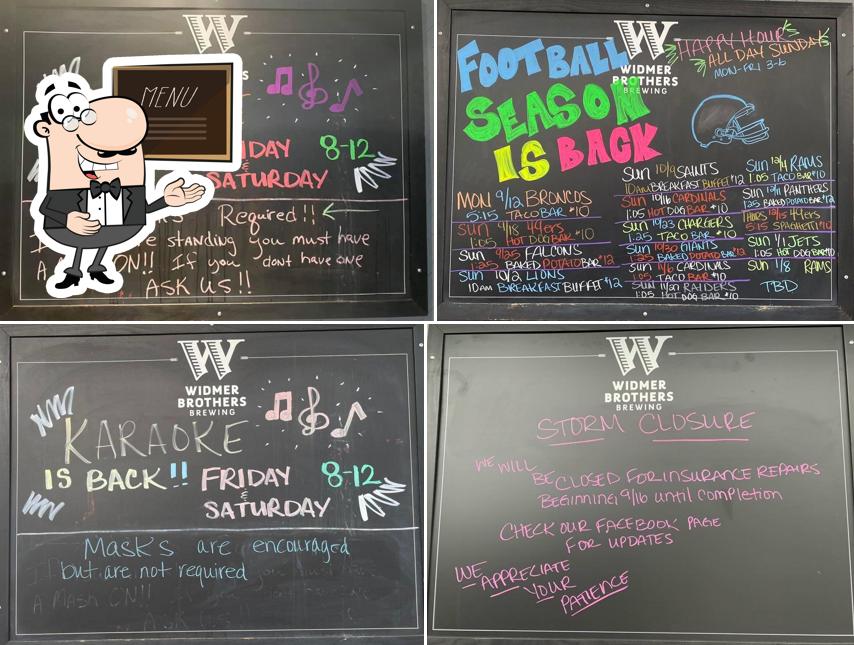 W
MENU
IDAY
8-12
SATURDAY
Required!!
e standing you must have
A
ON!! If you dont have one
ASK US!!
FOOTBALL
SEASON
IS BACK
W
WIDMER
BROTHERS
BREWING
HAPPY HOUR
ALL DAY SUNDAY
MON-FRI 3-6
MON 9/12 BRONCOS
5:15 TACO BAR $10
SUN 9/18 49ers
1:05 HOT DOG BAR $10
SUN 9/25 FALCONS
1:25 BAKED POTATO BAR $12
SUN 10/2 LIONS
10am BREAKFAST BUFFET $12
SUN 10/9 SAINTS
10am BREAKFAST BUFFET $12
SUN 10/16 CARDINALS
1:05 HOT DOG BAR $10
SUN 10/23 CHARGERS
1:25 TACO BAR $10
SUN 10/30 GIANTS
1:25 BAKED POTATO BAR $12
SUN 11/6 CARDINALS
1:05 TACO BAR $10
SUN 11/27 RAIDERS
1:05 HOT DOG BAR $10
SUN 12/4 RAMS
1:05 TACO BAR $10
SUN 12/11 PANTHERS
1:25 BAKED POTATO BAR $12
THURS 12/15 49ers
5:15 SPAGHETTI $10
SUN 1/1 JETS
1:05 HOT DOG BAR $10
SUN 1/8 RAMS
TBD
W
WIDMER
BROTHERS
BREWING
KARAOKE
IS BACK!! FRIDAY 8-12
&
SATURDAY
Masks are encouraged
but are not required
A MASK ON!!
W
WIDMER
BROTHERS
BREWING
STORM CLOSURE
WE WILL
BE CLOSED FOR INSURANCE REPAIRS
BEGINNING 9/16 UNTIL COMPLETION
CHECK OUR FACEBOOK PAGE
FOR UPDATES
WE
APPRECIATE
YOUR
PATIENCE